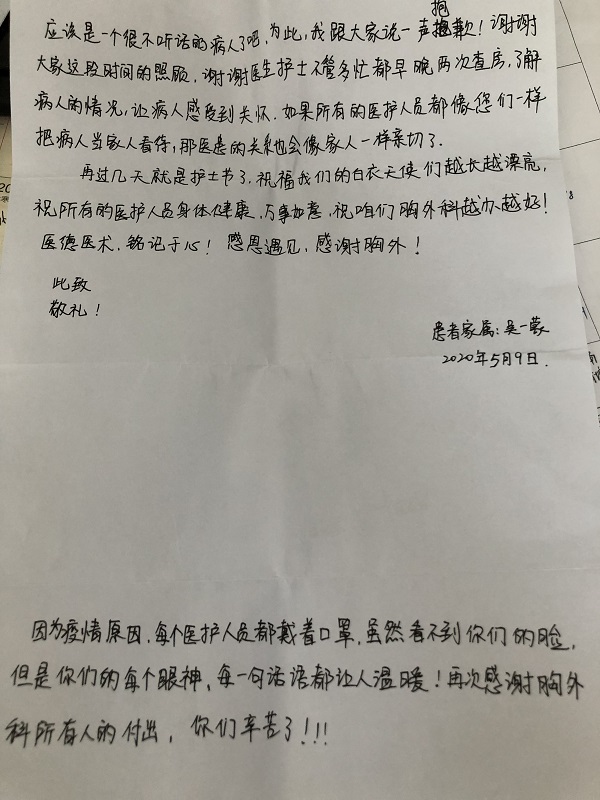 抱
应该是一个很不听话的病人了吧,为此,我跟大家说一声抱歉!谢谢
大家这段时间的照顾,谢谢医生护士不管多忙都早晚两次查房,了解
病人的情况,让病人感受到关怀.如果所有的医护人员都像您们一样
把病人当家人看待,那医患的关系也会像家人一样亲切了.
再过几天就是护士节了,祝福我们的白衣天使们越长越漂亮,
祝所有的医护人员身体健康,万事如意,祝咱们胸外科越办越好!
医德医术,铭记于心!感恩遇见,感谢胸外!
此致
敬礼!
患者家属:吴一蒙
2020年5月9日.
因为疫情原因,每个医护人员都戴着口罩,虽然看不到你们的脸,
但是你们的每个眼神,每一句话语都让人温暖!再次感谢胸外
科所有人的付出,你们辛苦了!!!